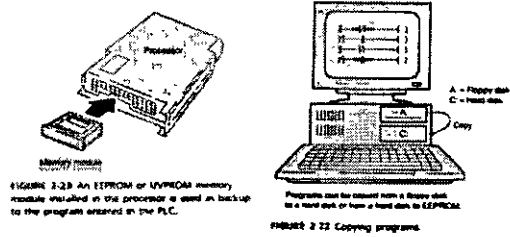 Processor
Memory module
FIGURE 2-23 An EEPROM or UVPROM memory
module installed in the processor is used to backup
to the program entered in the PLC.
A
C
A = Floppy disk
C = Hard disk
Copy
Programs can be copied from a floppy disk
to a hard disk or from a hard disk to EEPROM.
FIGURE 2-22 Copying programs.